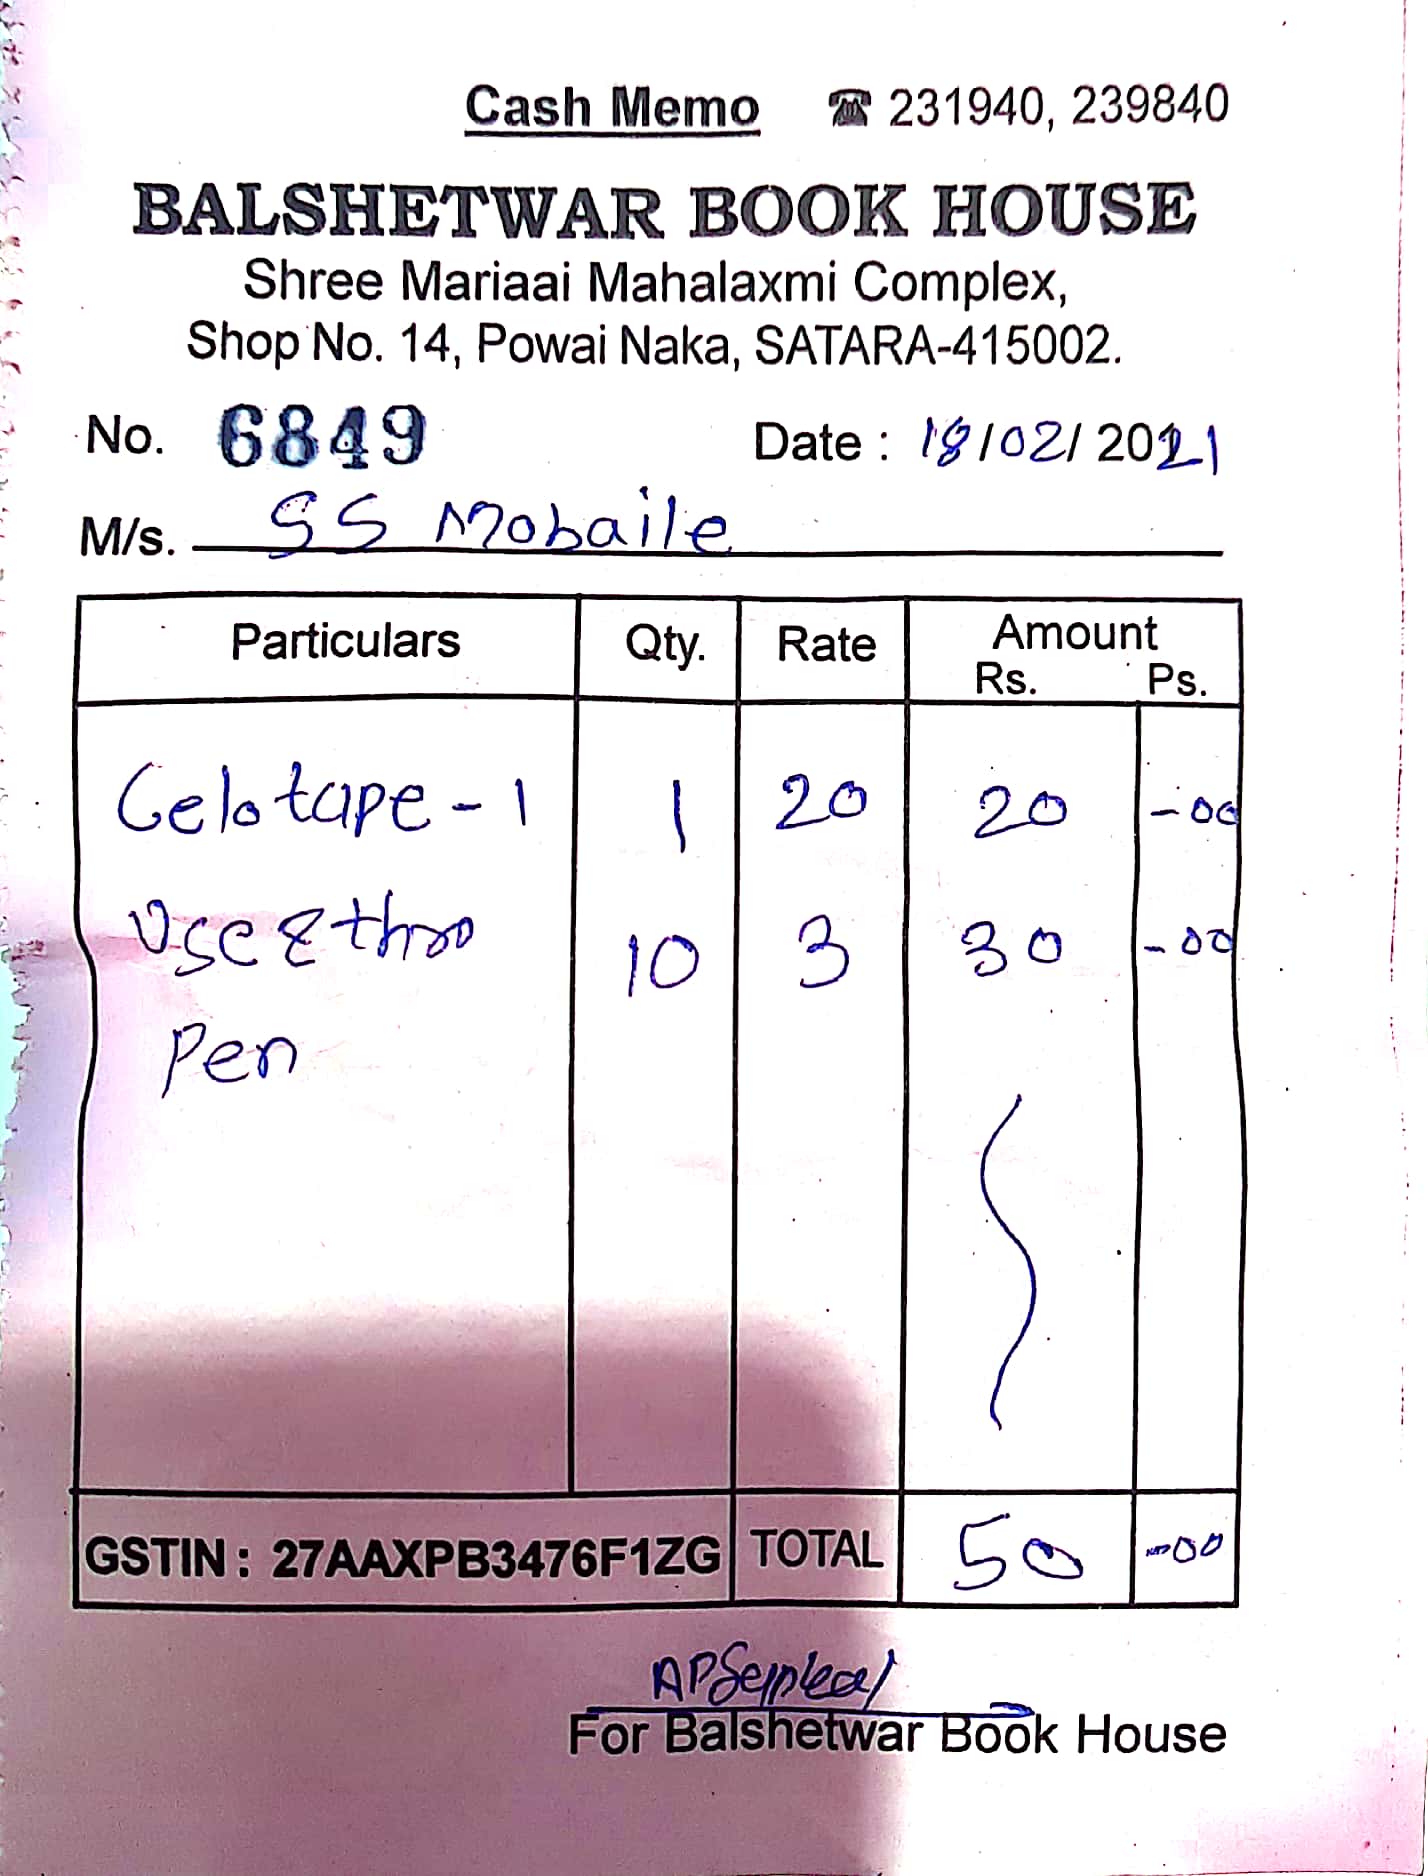 Cash Memo ☎ 231940, 239840
BALSHETWAR BOOK HOUSE
Shree Mariaai Mahalaxmi Complex,
Shop No. 14, Powai Naka, SATARA-415002.
No. 6849 Date : 18/02/2021
M/s. SS Mobaile
Particulars Qty. Rate Amount
Rs. Ps.
Celotape-1 1 20 20 -00
Use & thro 10 3 30 -00
Pen
GSTIN : 27AAXPB3476F1ZG TOTAL 50 -00
For Balshetwar Book House